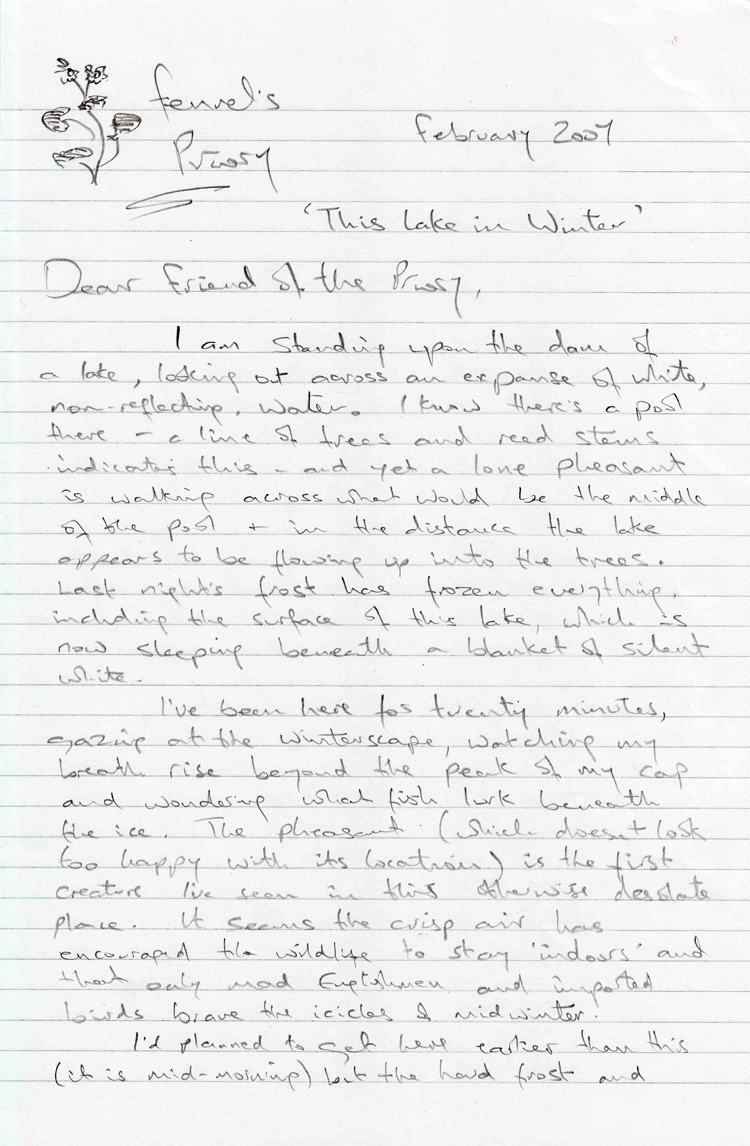 Fennel's
Priory
February 2007
'This Lake in Winter'
Dear Friend of the Priory,
I am standing upon the dam of
a lake, looking out across an expanse of white,
non-reflecting, water. I know there's a pool
there – a line of trees and reed stems
indicates this – and yet a lone pheasant
is walking across what would be the middle
of the pool + in the distance the lake
appears to be flowing up into the trees.
Last night's frost has frozen everything,
including the surface of this lake, which is
now sleeping beneath a blanket of silent
white.
I've been here for twenty minutes,
gazing at the winterscape, watching my
breath rise beyond the peak of my cap
and wondering what fish lurk beneath
the ice. The pheasant (which doesn't look
too happy with its location) is the first
creature I've seen in this otherwise desolate
place. It seems the crisp air has
encouraged the wildlife to stay 'indoors' and
that only mad Englishmen and imported
birds brave the icicles of midwinter.
I'd planned to get here earlier than this
(it is mid-morning) but the hard frost and